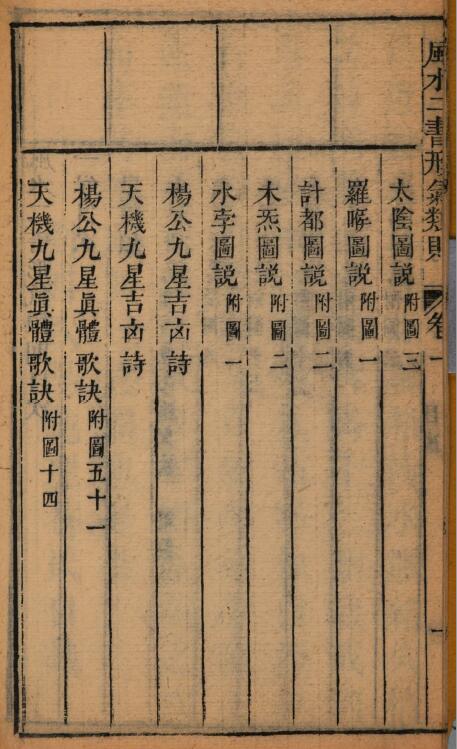 風水二書形氣類則
卷一
一
太陰圖説 附圖三
羅睺圖説 附圖一
計都圖説 附圖二
木炁圖説 附圖二
水孛圖説 附圖一
楊公九星吉凶詩
天機九星吉凶詩
楊公九星眞體歌訣 附圖五十一
天機九星眞體歌訣 附圖十四